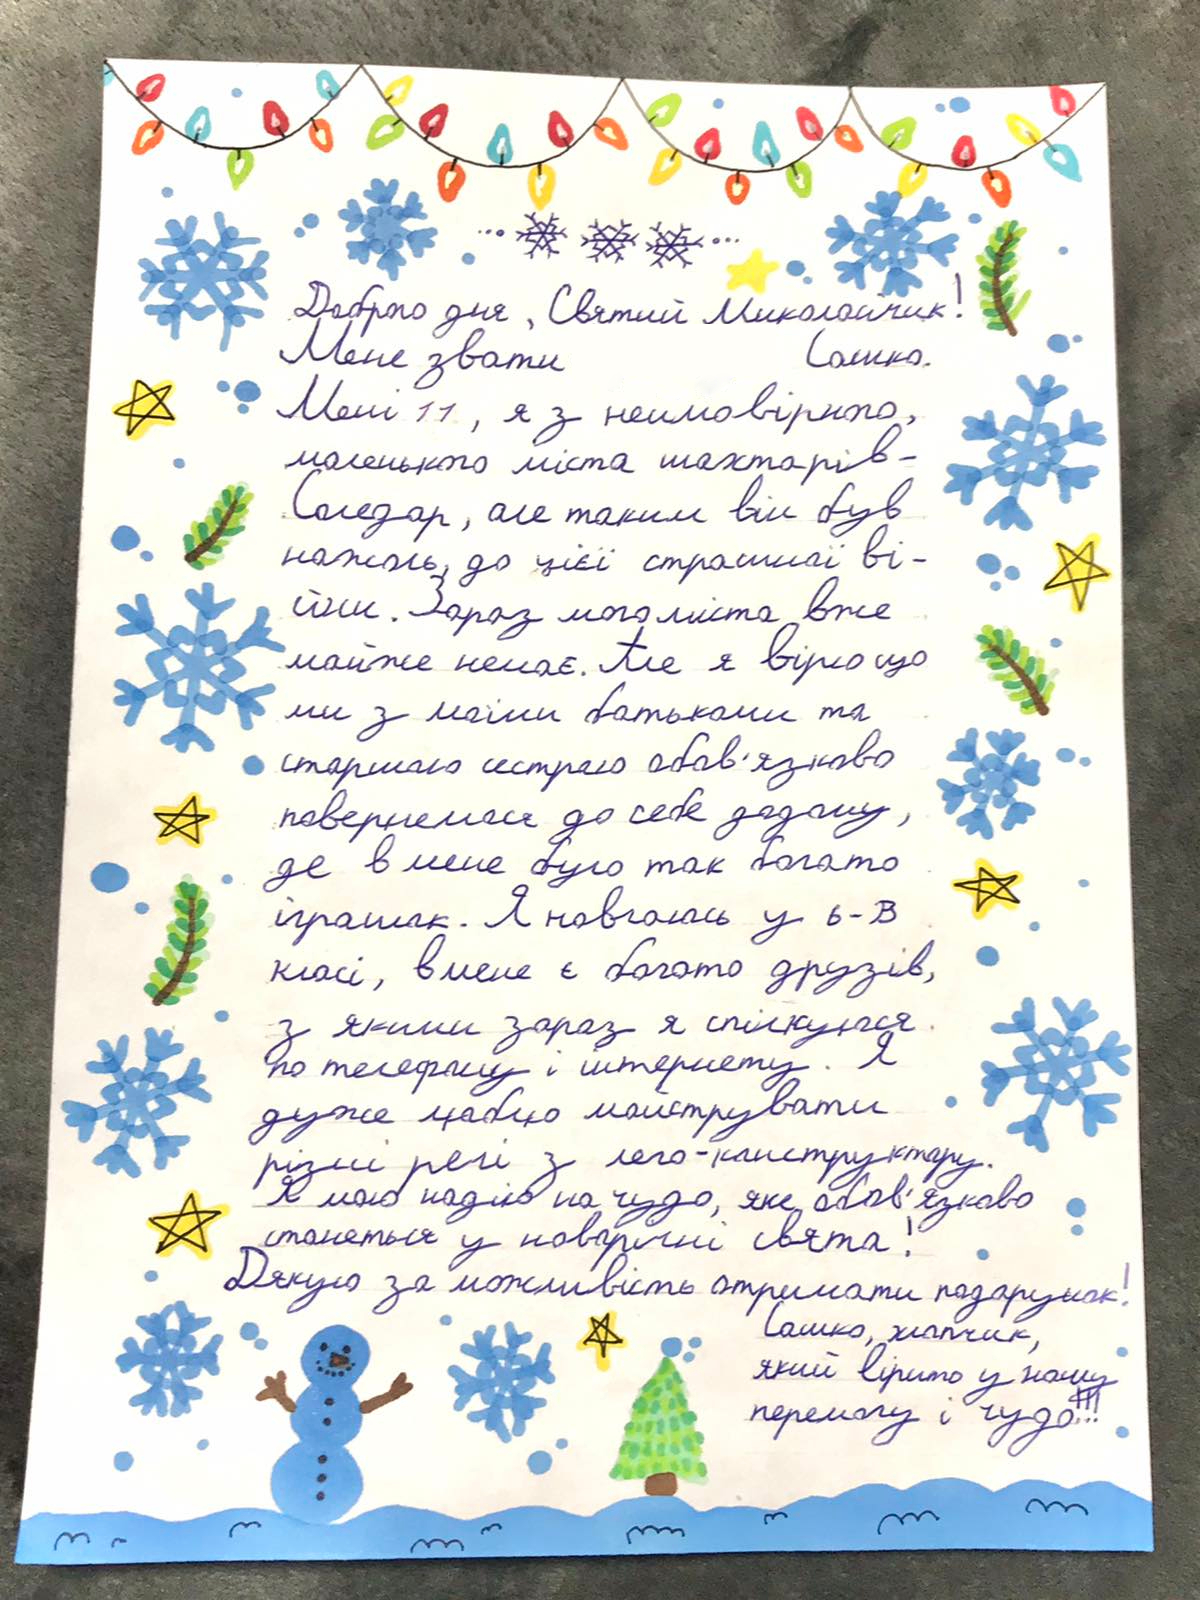 Доброго дня, Святий Миколайчик!
Мене звати Сашко.
Мені 11, я з неймовірного,
маленького міста шахтарів-
Соледар, але таким він був
нажаль, до цієї страшної ві-
йни. Зараз мого міста вже
майже немає. Але я вірю що
ми з моїми батьками та
старшою сестрою обов'язково
повернемося до себе додому,
де в мене було так багато
іграшок. Я навчаюсь у 6-В
класі, в мене є багато друзів,
з якими зараз я спілкуюся
по телефону і інтернету. Я
дуже люблю майструвати
різні речі з лего-конструктору.
Я маю надію на чудо, яке обов'язково
станеться у новорічні свята!
Дякую за можливість отримати подарунок!
Сашко, хлопчик,
який вірить у нашу
перемогу і чудо!!!